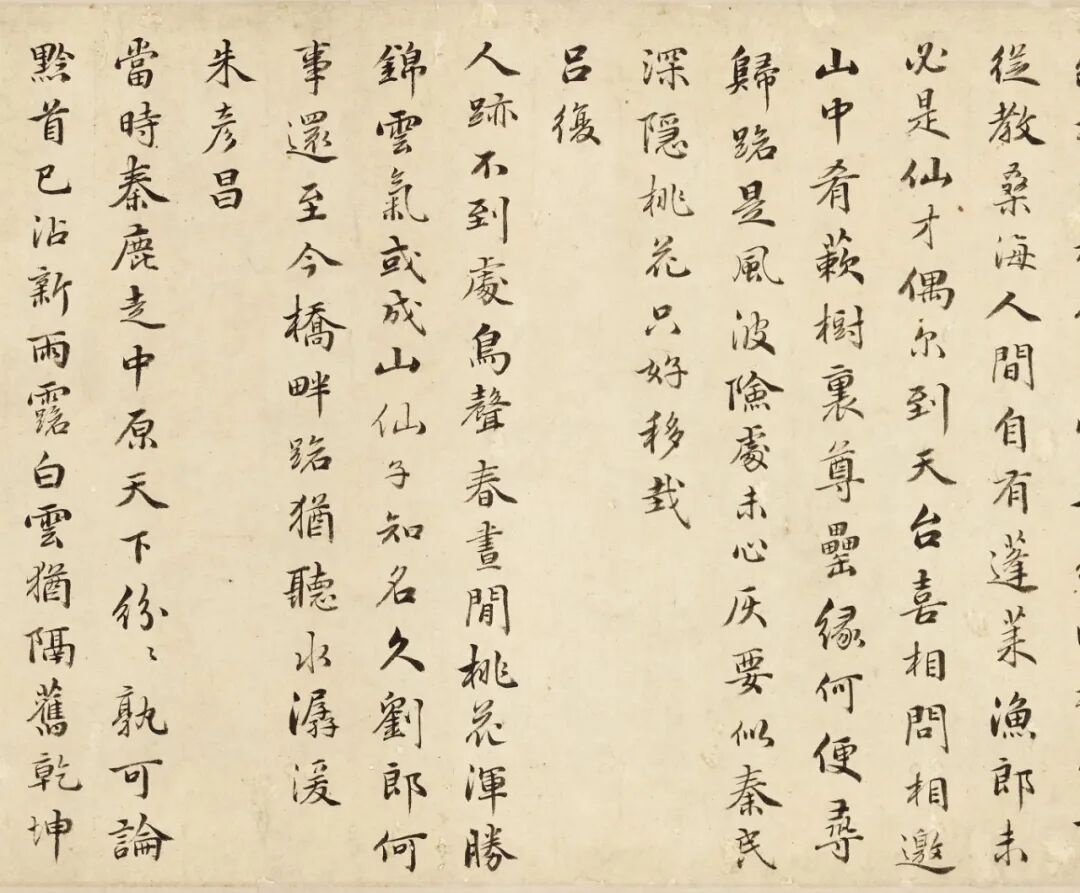 從教桑海人間自有蓬萊漁郎未
必是仙才偶尔到天台喜相問相邀
山中肴蔌樹裏尊罍緣何便尋
歸路是風波險處未心灰要似秦民
深隱桃花只好移栽
呂復
人跡不到處鳥聲春晝閒桃花渾勝
錦雲氣或成山仙子知名久劉郎何
事還至今橋畔路猶聽水潺湲
朱彥昌
當時秦鹿走中原天下紛〻孰可論
黔首已沾新雨露白雲猶隔舊乾坤